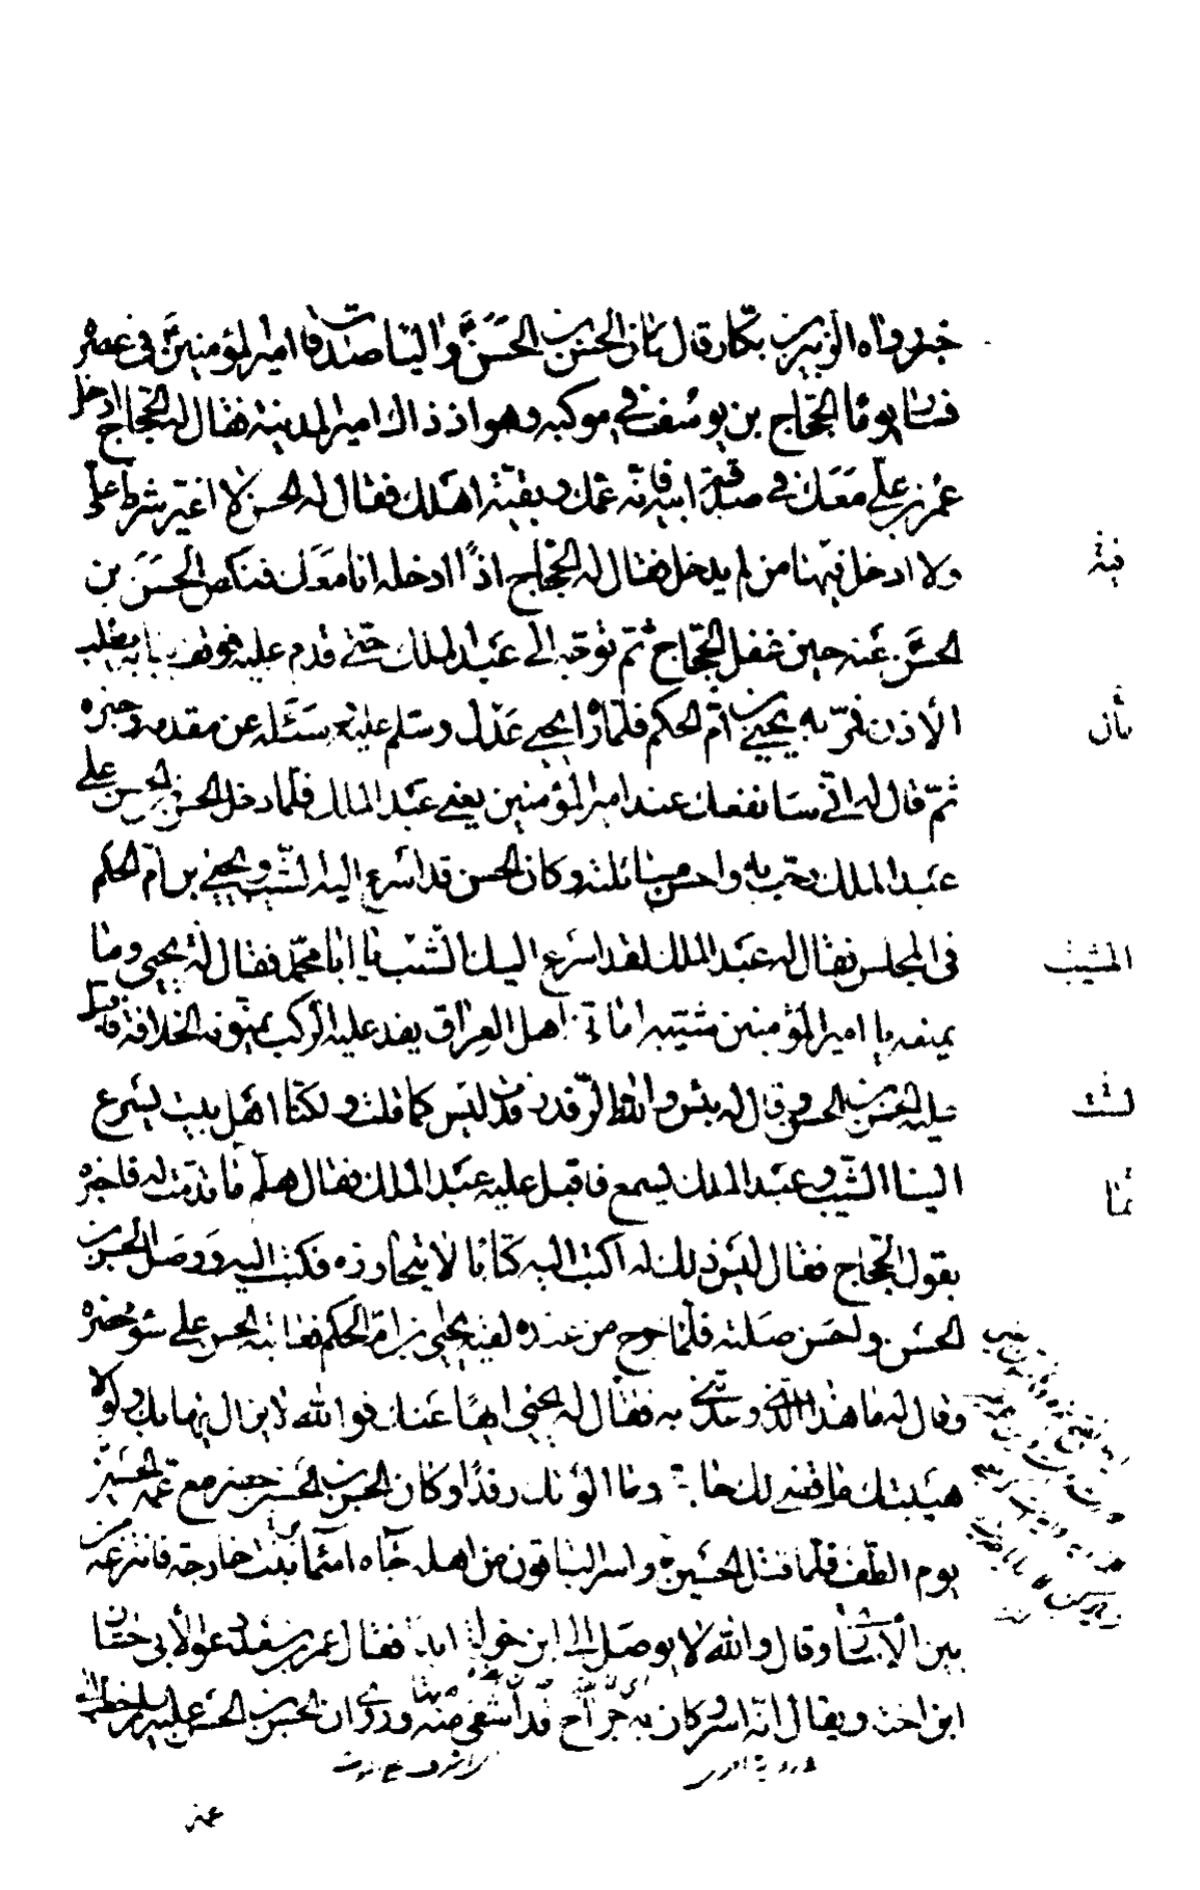 خبر رواه الزبير بن بكار قال كان الحسن بن الحسن واليا صدقات امير المؤمنين في عصره
فسار يوما الحجاج بن يوسف في موكبه وهو اذ ذاك امير المدينة فقال له الحجاج ادخل
عمر بن علي معك في صدقة ابيه فانه عمك وبقية اهلك فقال له الحسن لا اغير شرط علي
ولا ادخل فيها من لم يدخل فقال له الحجاج اذا ادخله انا معك فنكص الحسن بن
الحسن عنه حين غفل الحجاج ثم توجه الى عبد الملك حتى قدم عليه فوقف ببابه يطلب
الاذن فمر به يحيى بن ام الحكم فلما راه يحيى عدل وسلم عليه وسئله عن مقدمه وخبره
ثم قال له اني سانفعك عند امير المؤمنين يعني عبد الملك فلما دخل الحسن بن الحسن على
عبد الملك رحب به واحسن مسائلته وكان الحسن قد اسرع اليه الشيب ويحيى بن ام الحكم
في المجلس فقال له عبد الملك لقد اسرع اليك الشيب يا ابا محمد فقال له يحيى وما
يمنعه يا امير المؤمنين شيبه اماني اهل العراق يفد عليه الركب يمنونه الخلافة فاقبل
عليه الحسن بن الحسن وقال له بئس والله الرفد رفدت ليس كما قلت ولكنا اهل بيت يسرع
الينا الشيب وعبد الملك يسمع فاقبل عليه عبد الملك فقال هلم ما قدمت له فاخبره
بقول الحجاج فقال ليس ذلك له اكتب اليه كتابا لا يتجاوزه فكتب اليه ووصل الحسن بن
الحسن واحسن صلته فلما خرج من عنده لقيه يحيى بن ام الحكم فعاتبه الحسن على سوء محضره
وقال له ما هذا الذي وعدتني به فقال له يحيى ايها عنك فوالله لا يزال يهابك ولولا
هيبتك ما قضى لك حاجة وما الوتك رفدا وكان الحسن بن الحسن حضر مع عمه الحسين
يوم الطف فلما قتل الحسين واسر الباقون من اهله جاه اسماء بن خارجة فانتزعه من
بين الأسارى وقال والله لا يوصل الى ابن خولة ابدا فقال عمر بن سعد دعوا لأبي حسان
ابن اخته ويقال انه اسر وكان به جراح قد اشفى منه وروي ان الحسن بن الحسن عليه السلام خطب الى
عمه
فيه
بأن
المشيب
لست
بما